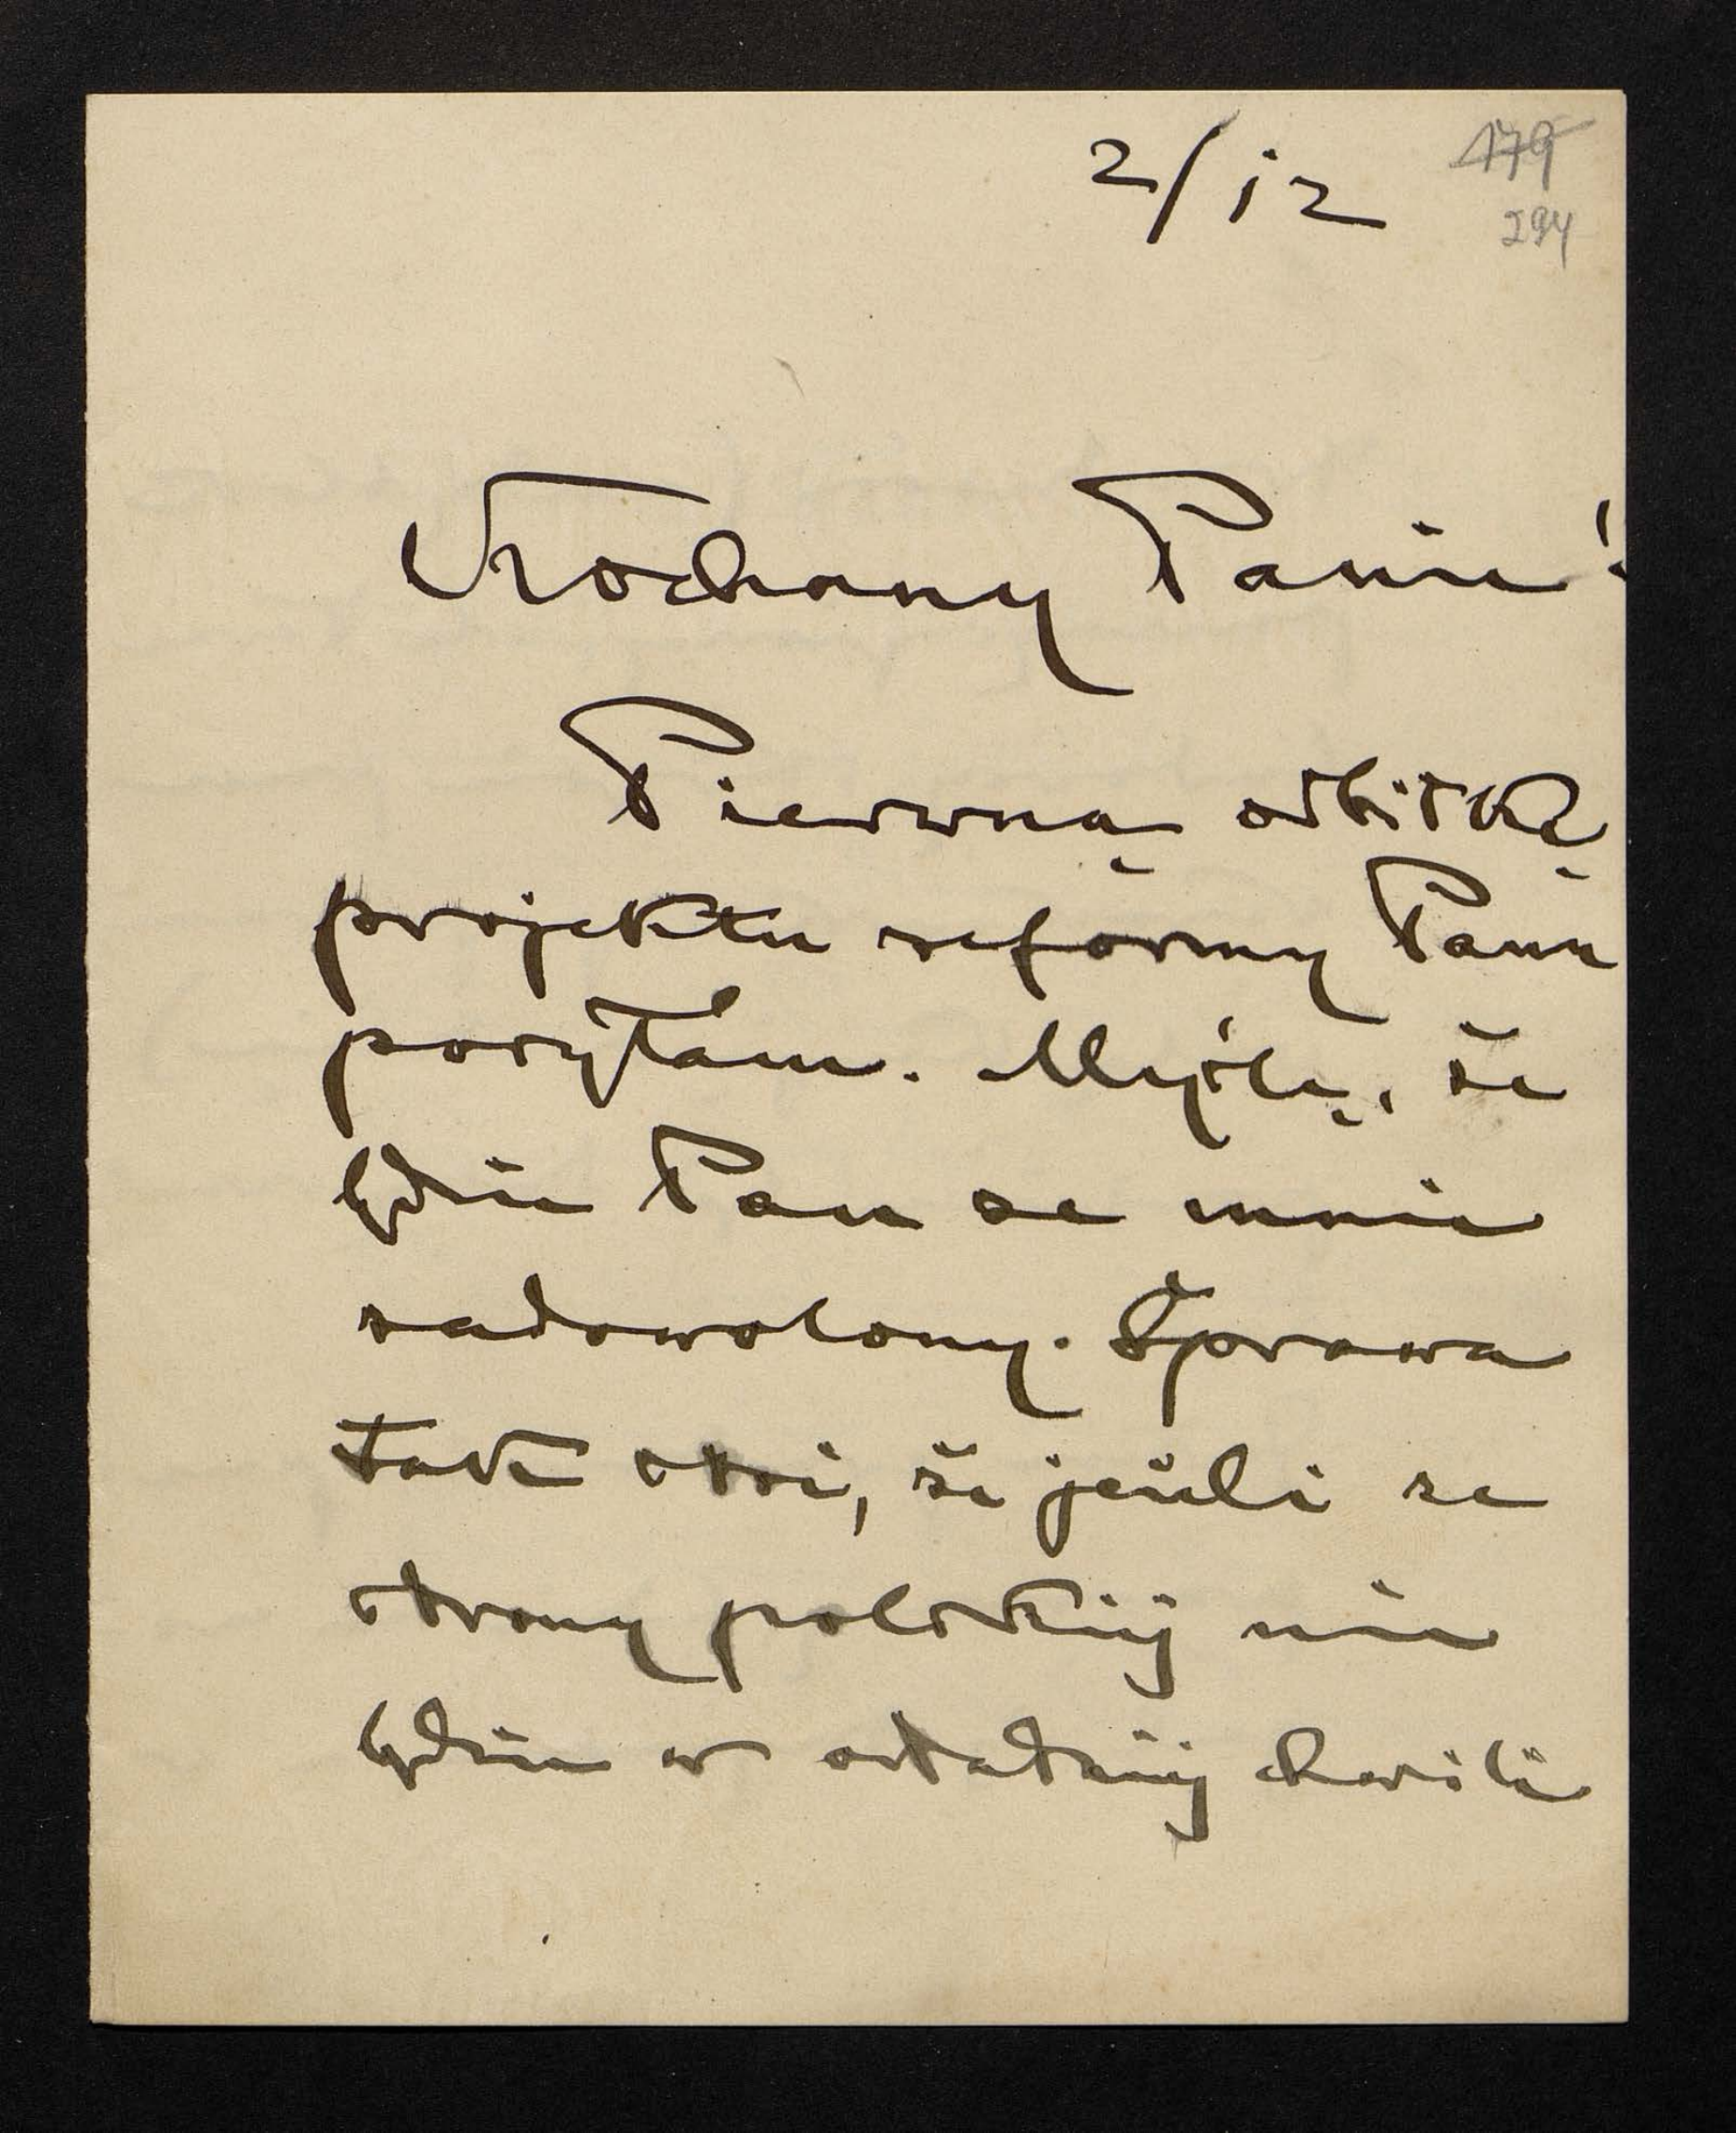 2/12
179
294
Kochany Panie!
Pierwszą odbitkę
projektu reformy Panu
posyłam. Myślę, że
będzie Pan ze mnie
zadowolony. Sprawa
tak stoi, że jeżeli ze
strony polskiej nie
będzie w ostatniej chwili